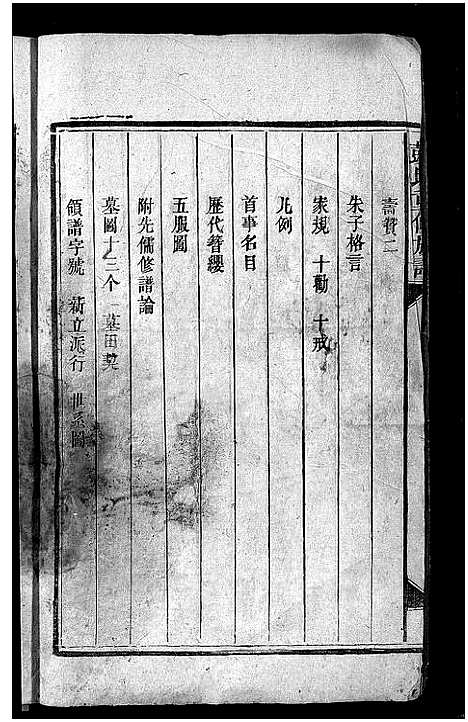 壽贊二
朱子格言
家規 十勸 十戒
凡例
首事名目
歷代簪纓
五服圖
附先儒修譜論
墓圖十三个 墓田契
領譜字號 新立派行 世系圖